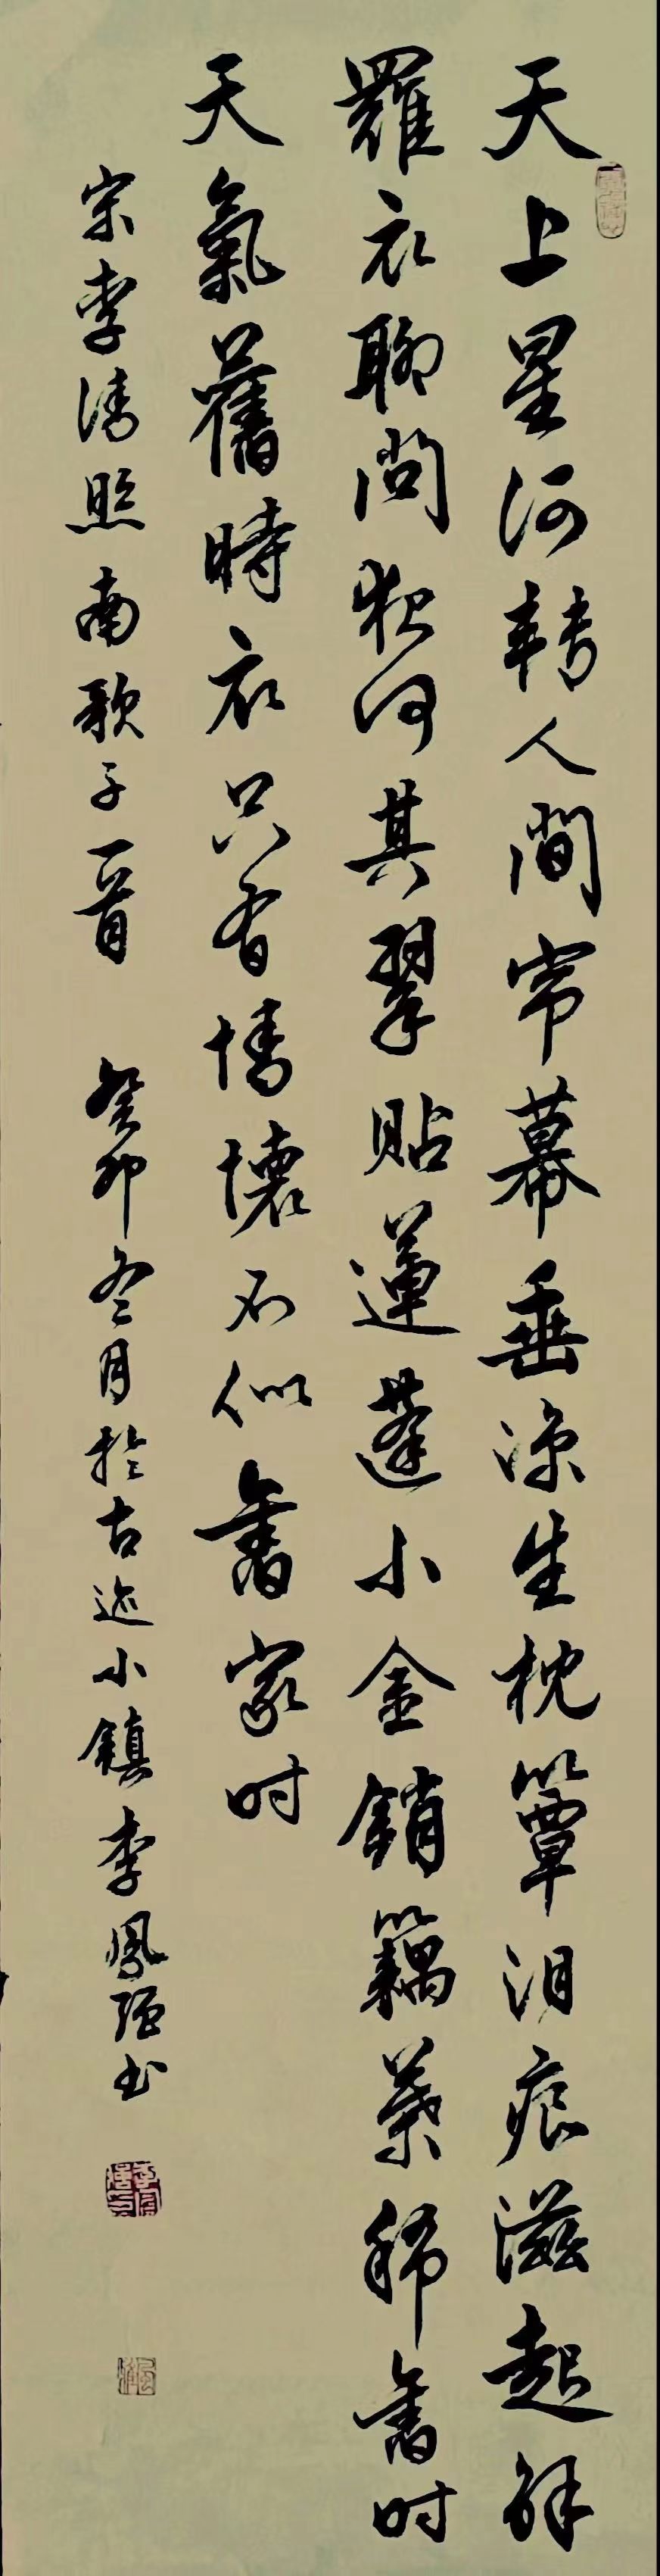 天上星河轉人間帘幕垂涼生枕簟泪痕滋起解
羅衣聊問夜何其翠貼蓮蓬小金銷藕葉稀舊时
天氣舊時衣只有情懷不似舊家时
宋李清照南歌子一首 癸卯冬月於古迹小鎮李鳳强书